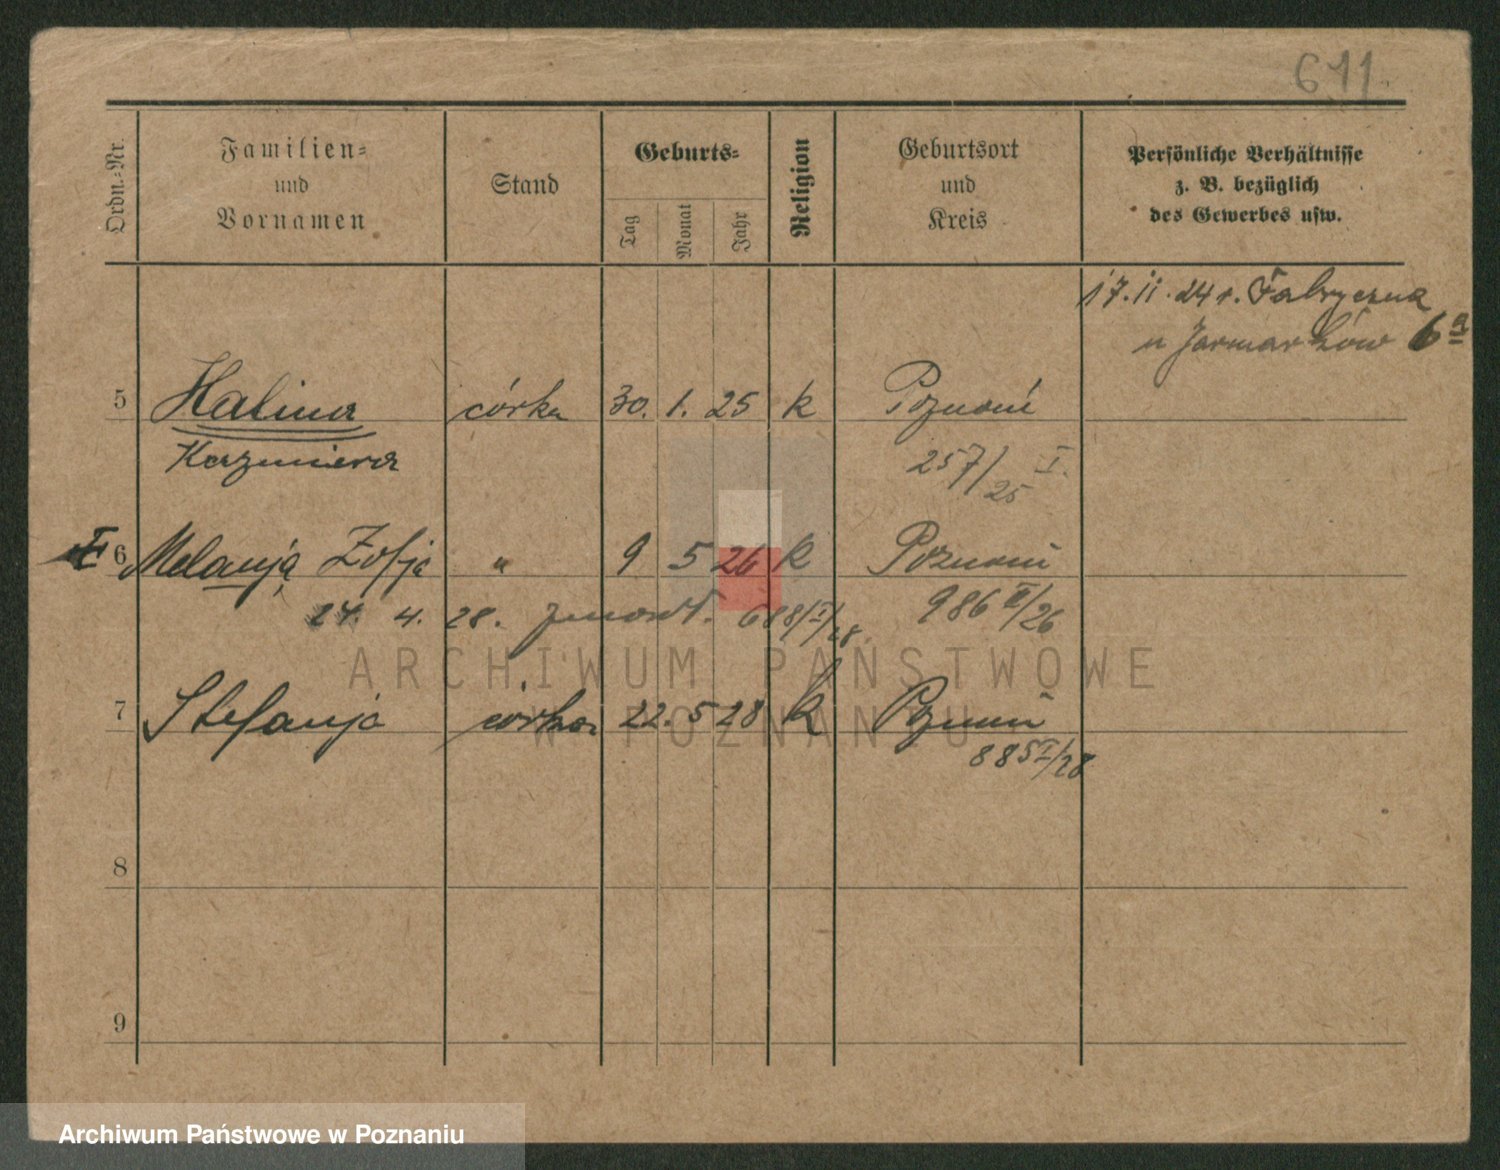 611.
Ordn.-Nr.
Familien-
und
Vornamen
Stand
Geburts-
Tag
Monat
Jahr
Religion
Geburtsort
und
Kreis
Persönliche Verhältnisse
z. B. bezüglich
des Gewerbes usw.
17. 11. 24 r. Fabryczna
u Jarmarków 6 a
5 Halina córka 30. 1. 25 k Poznań
Kazimiera 257/25 I.
6 Melanja Zofja " 9 5 26 k Poznań
24. 4. 28. zmarł. 688/I/28 986 II/26
7 Stefanja córka 22. 5 28 k Poznań
885 I/28
8
9
ARCHIWUM PAŃSTWOWE
W POZNANIU
Archiwum Państwowe w Poznaniu